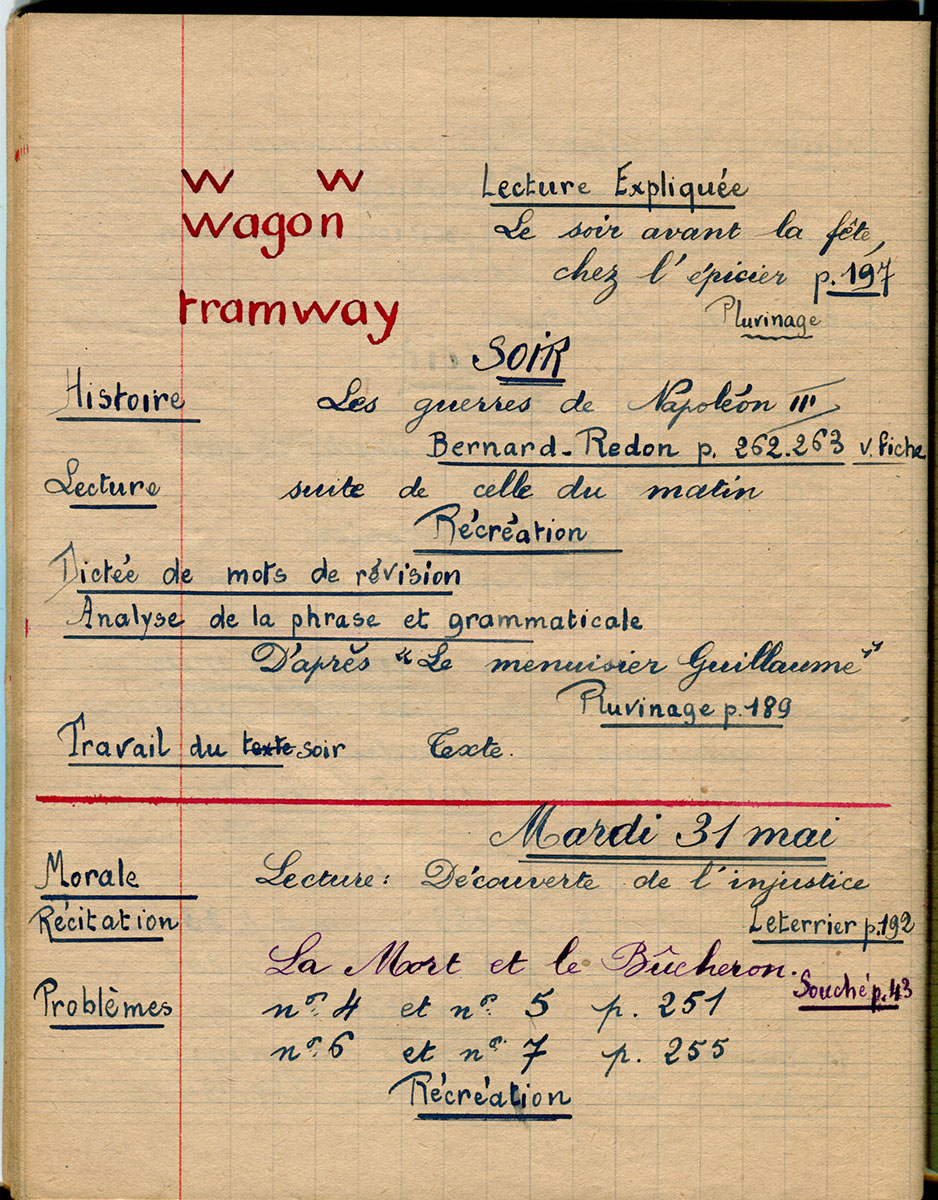 w w
wagon
tramway
Lecture Expliquée
Le soir avant la fête,
chez l'épicier p. 197
Pluvinage
SOIR
Histoire Les guerres de Napoléon III
Bernard-Redon p. 262-263 v. fiche
Lecture suite de celle du matin
Récréation
Dictée de mots de révision
Analyse de la phrase et grammaticale
D'après "Le menuisier Guillaume"
Pluvinage p.189
Travail du texte soir Texte.
Mardi 31 mai
Morale Lecture: Découverte de l'injustice
Récitation Leterrier p.192
La Mort et le Bûcheron. Souché p.43
Problèmes nos. 4 et no. 5 p. 251
no. 6 et no. 7 p. 255
Récréation